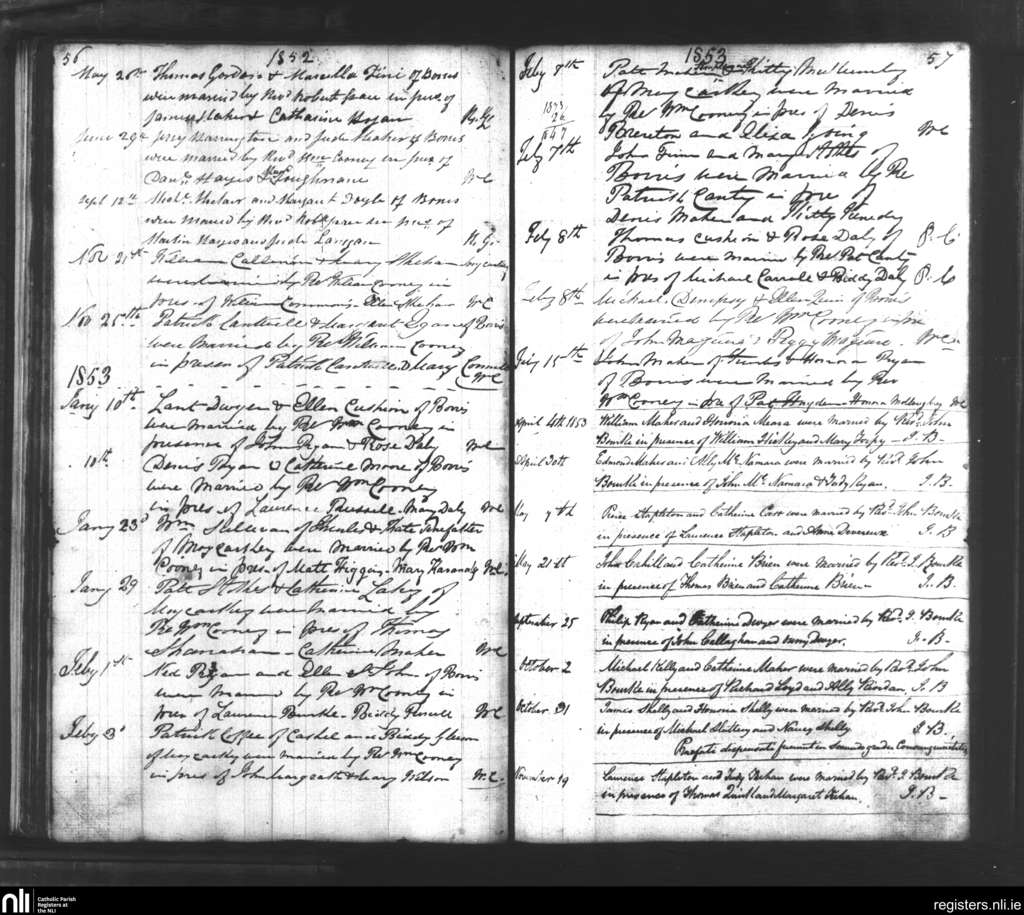 56 1852
May 26th Thomas Gordon & Marcella Finn of Borris
were married by Revd Robert Grace in pres. of
James Maher & Catharine Hogan R. G.
June 29th Jerry Harrington and Jude Maher of Borris
were married by Revd Wm Cooney in pres of
Danl Hayes & Mary Loughnane WC
Sept 12th Michl Phelan and Margaret Doyle of Borris
were married by Revd Robt Grace in pres. of
Martin Hayes and Jude Langan R. G.
Nov 21st William Callanan & Mary Meehan Moycarkey
were married by Rev William Cooney in
pres of William Commons Ellen Maher WC
Nov 25th Patrick Cantwell & Margaret Egan of Borris
were Married by Rev William Cooney
in presen of Patrick Cantwell & Mary Commons
WC
1853
Jany 10th Lant Dwyer & Ellen Cushion of Borris
were Married by Rev Wm Cooney in
presence of John Ryan & Rose Daly WC
10th Denis Ryan & Catherine Moore of Borris
were Married by Rev Wm Cooney
in pres of Lawrence Russell Mary Daly WC
Jany 23d Wm Sullivan of Thurles & Kate
of Moycarkey were Married by Rev Wm
Cooney in pres. of Matt Higgins Mary WC
Jany 29 Patt & Catherine of
Moycarkey were Married by
Rev Wm Cooney in pres of Thomas
Shanahan - Catherine Maher WC
Feby 1st Ned Ryan and Ellen St John of Borris
were Married by Rev Wm Cooney in
pres of Laurence Burke - Biddy Russell WC
Feby 3d Patrick Coffee of Cashel and Biddy Gleeson
of Moycarkey were married by Rev Wm Cooney
in pres of John & Mary Wilson W.C.
1853 57
Feby 7th Patt & Kitty
of Moycarkey were Married
by Rev Wm Cooney in pres of Denis
Brereton and Eliza Young WC
1873
26
1847
Feby 7th John Finn and Mary of
Borris were Married by the Rev
Patrick Canty in pres of
Denis Maher and Kitty Kennedy P. C
Feby 8th Thomas Cushion & Rose Daly of
Borris were Married by Rev Pat Canty
in pres of Michael Carroll & Biddy Daly P. C
Feby 8th Michael Dempsey & Ellen Quin of Borris
were married by Rev Wm Cooney in pre
of John Maguire & Peggy Maguire WC
Feby 15th John Maher of Thurles & Honora Ryan
of Borris were Married by Rev
Wm Cooney in pre of Pat Hayden Honora WC
April 4th 1853 William Maher and Honoria Meara were married by Revd John
Bourke in presence of William Hickey and Mary Torpy - J. B -
April 30th Edmond Maher and Ally McNamara were married by Revd John
Bourke in presence of John McNamara & Judy Ryan. J. B.
May 7th Pierce Stapleton and Catherine Carr were married by Revd John Bourke
in presence of Laurence Stapleton and Anne Devereux J. B
May 21st John Cahill and Catherine Brien were Married by Revd J. Bourke
in presence of Thomas Brien and Catherine Brien - J. B.
September 25 Philip Ryan and Catherine Dwyer were married by Revd J. Bourke
in presence of John Callaghan and Mary Dwyer. J. B -
October 2 Michael Kelly and Catherine Maher were married by Revd John
Bourke in presence of Richard Loyd and Ally Riordan. J. B
October 31 James Skelly and Honoria Skelly were married by Revd John Bourke
in presence of Michael Slattery and Nancy Skelly J. B.
Praefate dispensati fuerunt in secundo gradu Consanguinitatis
November 19 Laurence Stapleton and Judy Mehan were married by Revd J Bourke
in presence of Thomas Quirk and Margaret Mehan. J. B -
nli Catholic Parish
Registers at
the NLI
registers.nli.ie